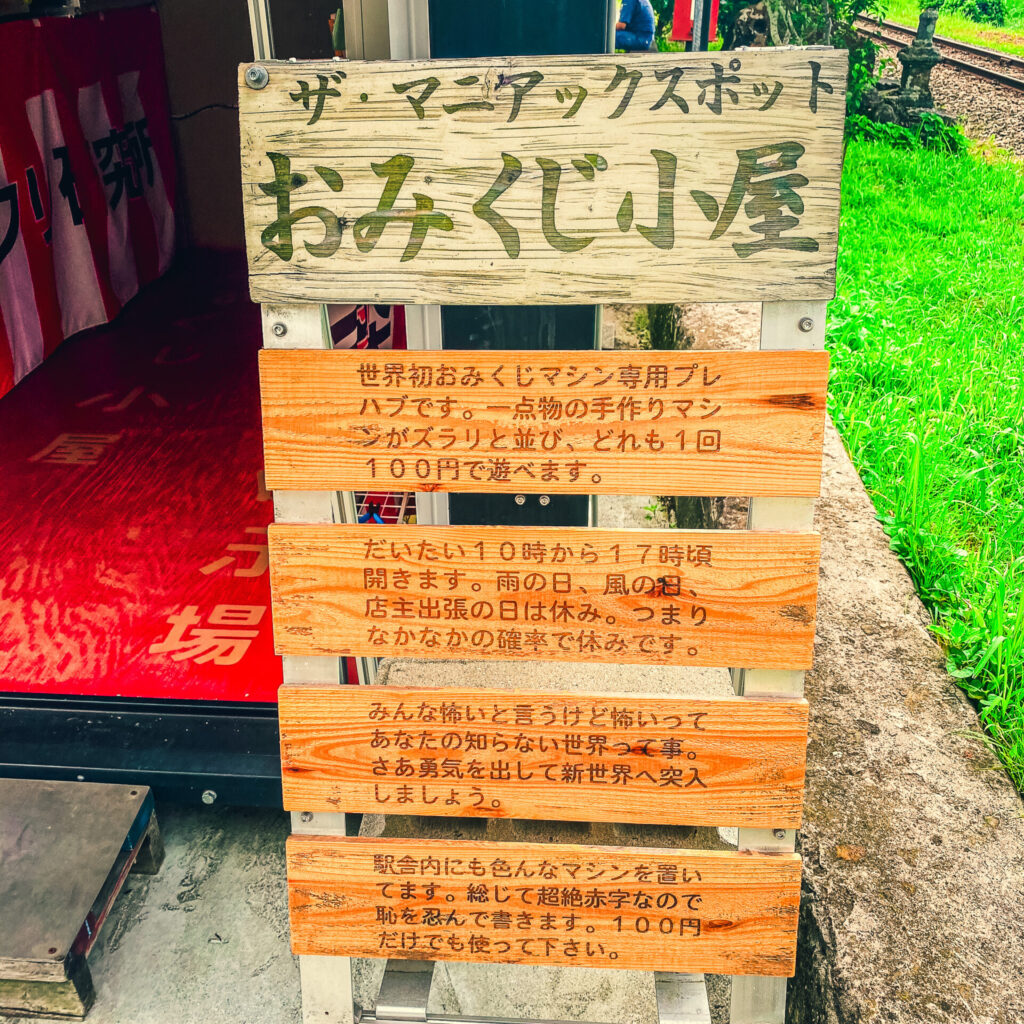 ザ・マニアックスポット
おみくじ小屋
世界初おみくじマシン専用プレ
ハブです。一点物の手作りマシ
ンがズラリと並び、どれも1回
100円で遊べます。
だいたい10時から17時頃
開きます。雨の日、風の日、
店主出張の日は休み。つまり
なかなかの確率で休みです。
みんな怖いと言うけど怖いって
あなたの知らない世界って事。
さあ勇気を出して新世界へ突入
しましょう。
駅舎内にも色んなマシンを置い
てます。総じて超絶赤字なので
恥を忍んで書きます。100円
だけでも使って下さい。
研究所
小屋
場